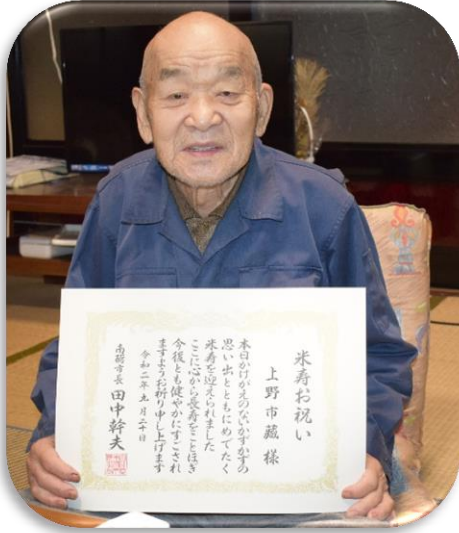 米寿お祝い
上野市藏様
本日かけがえのないかずかずの
思い出とともにめでたく
米寿を迎えられました
ここに心から長寿をことほぎ
今後とも健やかにすごされ
ますようお祈り申し上げます
令和二年九月二十日
南砺市長 田中幹夫